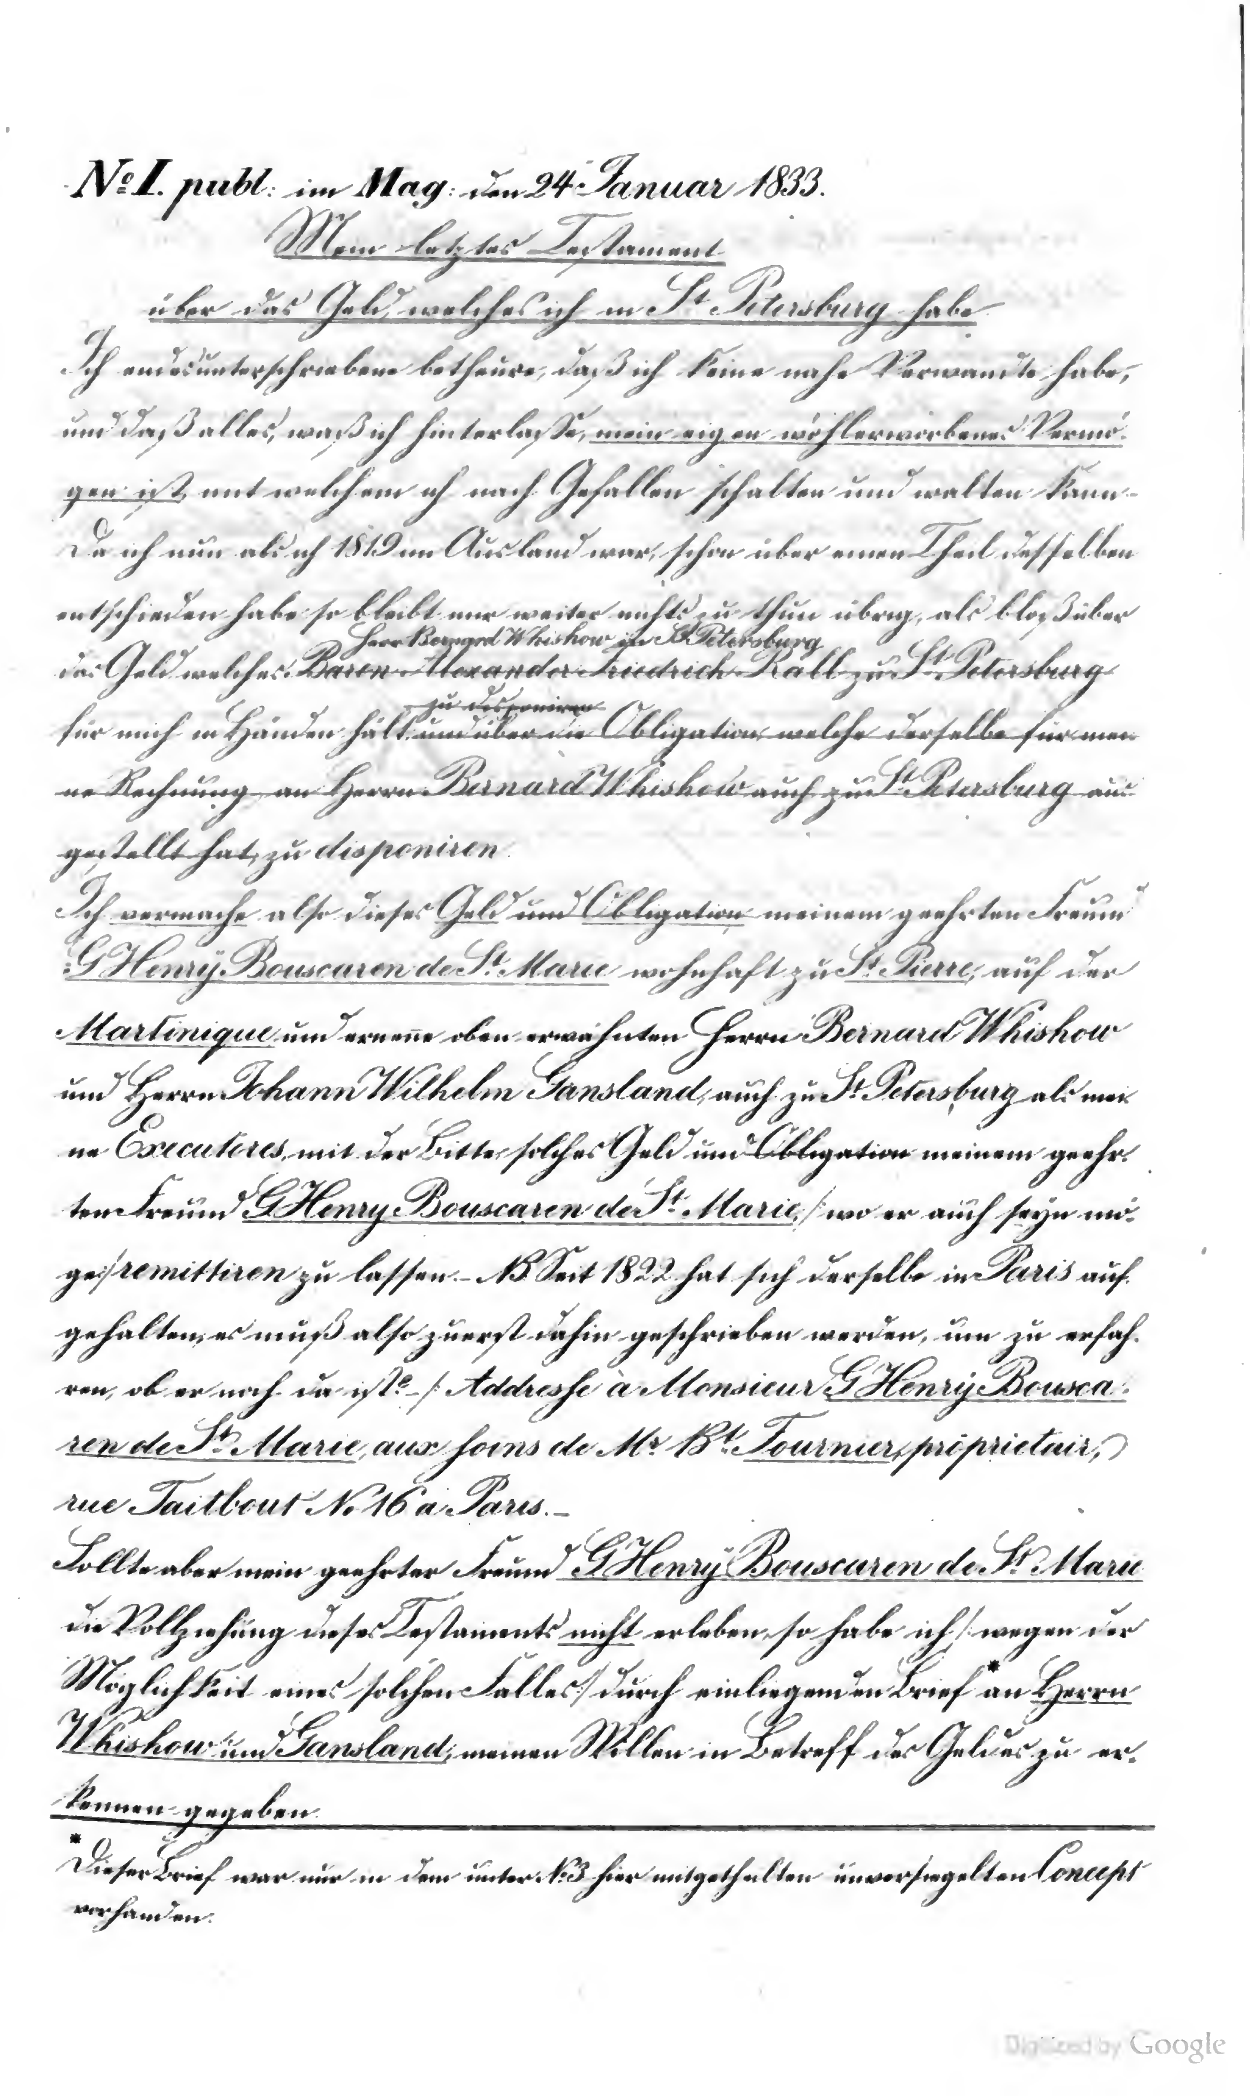 No. I. publ: im Mag: den 24. Januar 1833.
Mein letztes Testament
über das Geld, welches ich in St. Petersburg habe.
Ich endesunterschriebene betheure, daß ich keine nahe Verwandte habe,
und daß alles, waß ich hinterlasse, mein eigen wohlerworbenes Vermö-
gen ist, mit welchem ich nach Gefallen schalten und walten kann.
Da ich nun als ich 1819 im Ausland war, schon über einen Theil desselben
entschieden habe so bleibt mir weiter nichts zu thun übrig, als bloß über
Herr Bernard Whishow in St. Petersburg
das Geld welches Baron Alexander Friedrich Rall zu St. Petersburg
zu disponiren
für mich in Händen hält und über die Obligation welche derselbe für mei-
ne Rechnung an Herrn Bernard Whishow auch zu St. Petersburg aus-
gestellt hat, zu disponiren.
Ich vermache also dieses Geld und Obligation meinem geehrten Freund
G Henry Bouscaren de St. Marie wohnhaft zu St. Pierre, auf der
Martinique und ernenne oben erwähnten Herrn Bernard Whishow
und Herrn Johann Wilhelm Gansland, auch zu St. Petersburg als mei-
ne Executores, mit der Bitte, solches Geld und Obligation meinem geehr-
ten Freund G Henry Bouscaren de St. Marie, /: wo er auch seyn mö-
ge :/ remittiren zu lassen. – NB. Seit 1822 hat sich derselbe in Paris auf-
gehalten, es muß also zuerst dahin geschrieben werden, um zu erfah-
ren, ob er noch da ist. – /: Addresse à Monsieur G Henry Bousca-
ren de St. Marie, aux soins de Mr. Bt. Fournier, proprietair,
rue Taitbout No 16 a Paris. –
Sollte aber mein geehrter Freund G Henry Bouscaren de St. Marie
die Vollziehung dieses Testaments nicht erleben, so habe ich /: wegen der
Möglichkeit eines solchen Falles :/ durch einliegenden Brief* an Herrn
Whishow und Gansland, meinen Willen in Betreff des Geldes zu er-
kennen gegeben.
* Dieser Brief war nur in dem unter No. 3 hier mitgetheilten unversiegelten Concept
vorhanden.
Digitized by Google